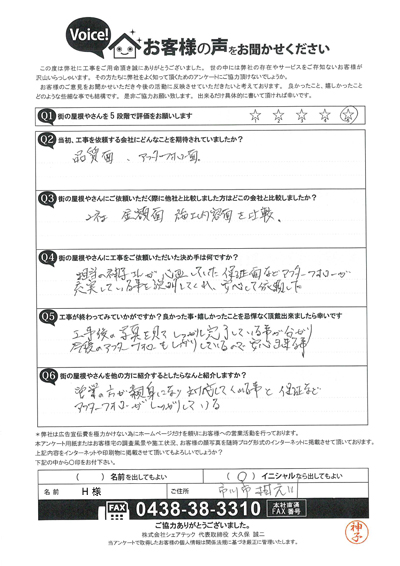 Voice!
お客様の声をお聞かせください
この度は弊社に工事をご用命頂き誠にありがとうございました。世の中には弊社の存在やサービスをご存知ないお客様が
沢山いらっしゃいます。その方たちに弊社をよく知って頂くためのアンケートにご協力頂けないでしょうか。
お客様のご意見をお聞かせいただき今後の活動に反映させていただきたいと考えております。良かったこと、嬉しかったこと
どのような些細な事でも結構です。是非ご協力お願い致します。出来るだけ具体的に書いて頂ければ幸いです。
Q1 街の屋根やさんを5段階で評価をお願いします ☆ ☆ ☆ ☆ ☆
Q2 当初、工事を依頼する会社にどんなことを期待されていましたか？
品質面、アフターフォロー面
Q3 街の屋根やさんにご依頼いただく際に他社と比較しました方はどこの会社と比較しましたか？
2社 金額面 施工内容面を比較。
Q4 街の屋根やさんに工事をご依頼いただいた決め手は何ですか？
していた 保証面などアフターフォローが
充実している事を説明してくれ、安心して依頼した
Q5 工事が終わってみていかがですか？良かった事・嬉しかったことを忌憚なく頂戴出来ましたら幸いです
工事後の写真を見て しっかり完了している事が分かり
今後のアフターフォローもしっかりしているので安心出来る事
Q6 街の屋根やさんを他の方に紹介するとしたらなんと紹介しますか？
営業の方が親身になり対応してくれる事と保証など
アフターフォローがしっかりしている
＊弊社は広告宣伝費を極力かけない為にホームページだけを頼りにお客様への営業活動を行っております。
本アンケート用紙またはお客様宅の調査風景や施工状況、お客様の顔写真を随時ブログ形式のインターネットに掲載させて頂いております。
上記内容をインターネットや印刷物に掲載させて頂いてもよろしいでしょうか？
下記の中から〇印をお付下さい。
（ ）名前を出してもよい （〇）イニシャルなら出してもよい
名前 H様 ご住所 市川市
FAX 0438-38-3310 本社直通 FAX番号
ご協力ありがとうございました。
株式会社シェアテック 代表取締役 大久保 誠二
当アンケートで取得したお客様の個人情報は関係法規に基づき厳正に管理いたします。
神子